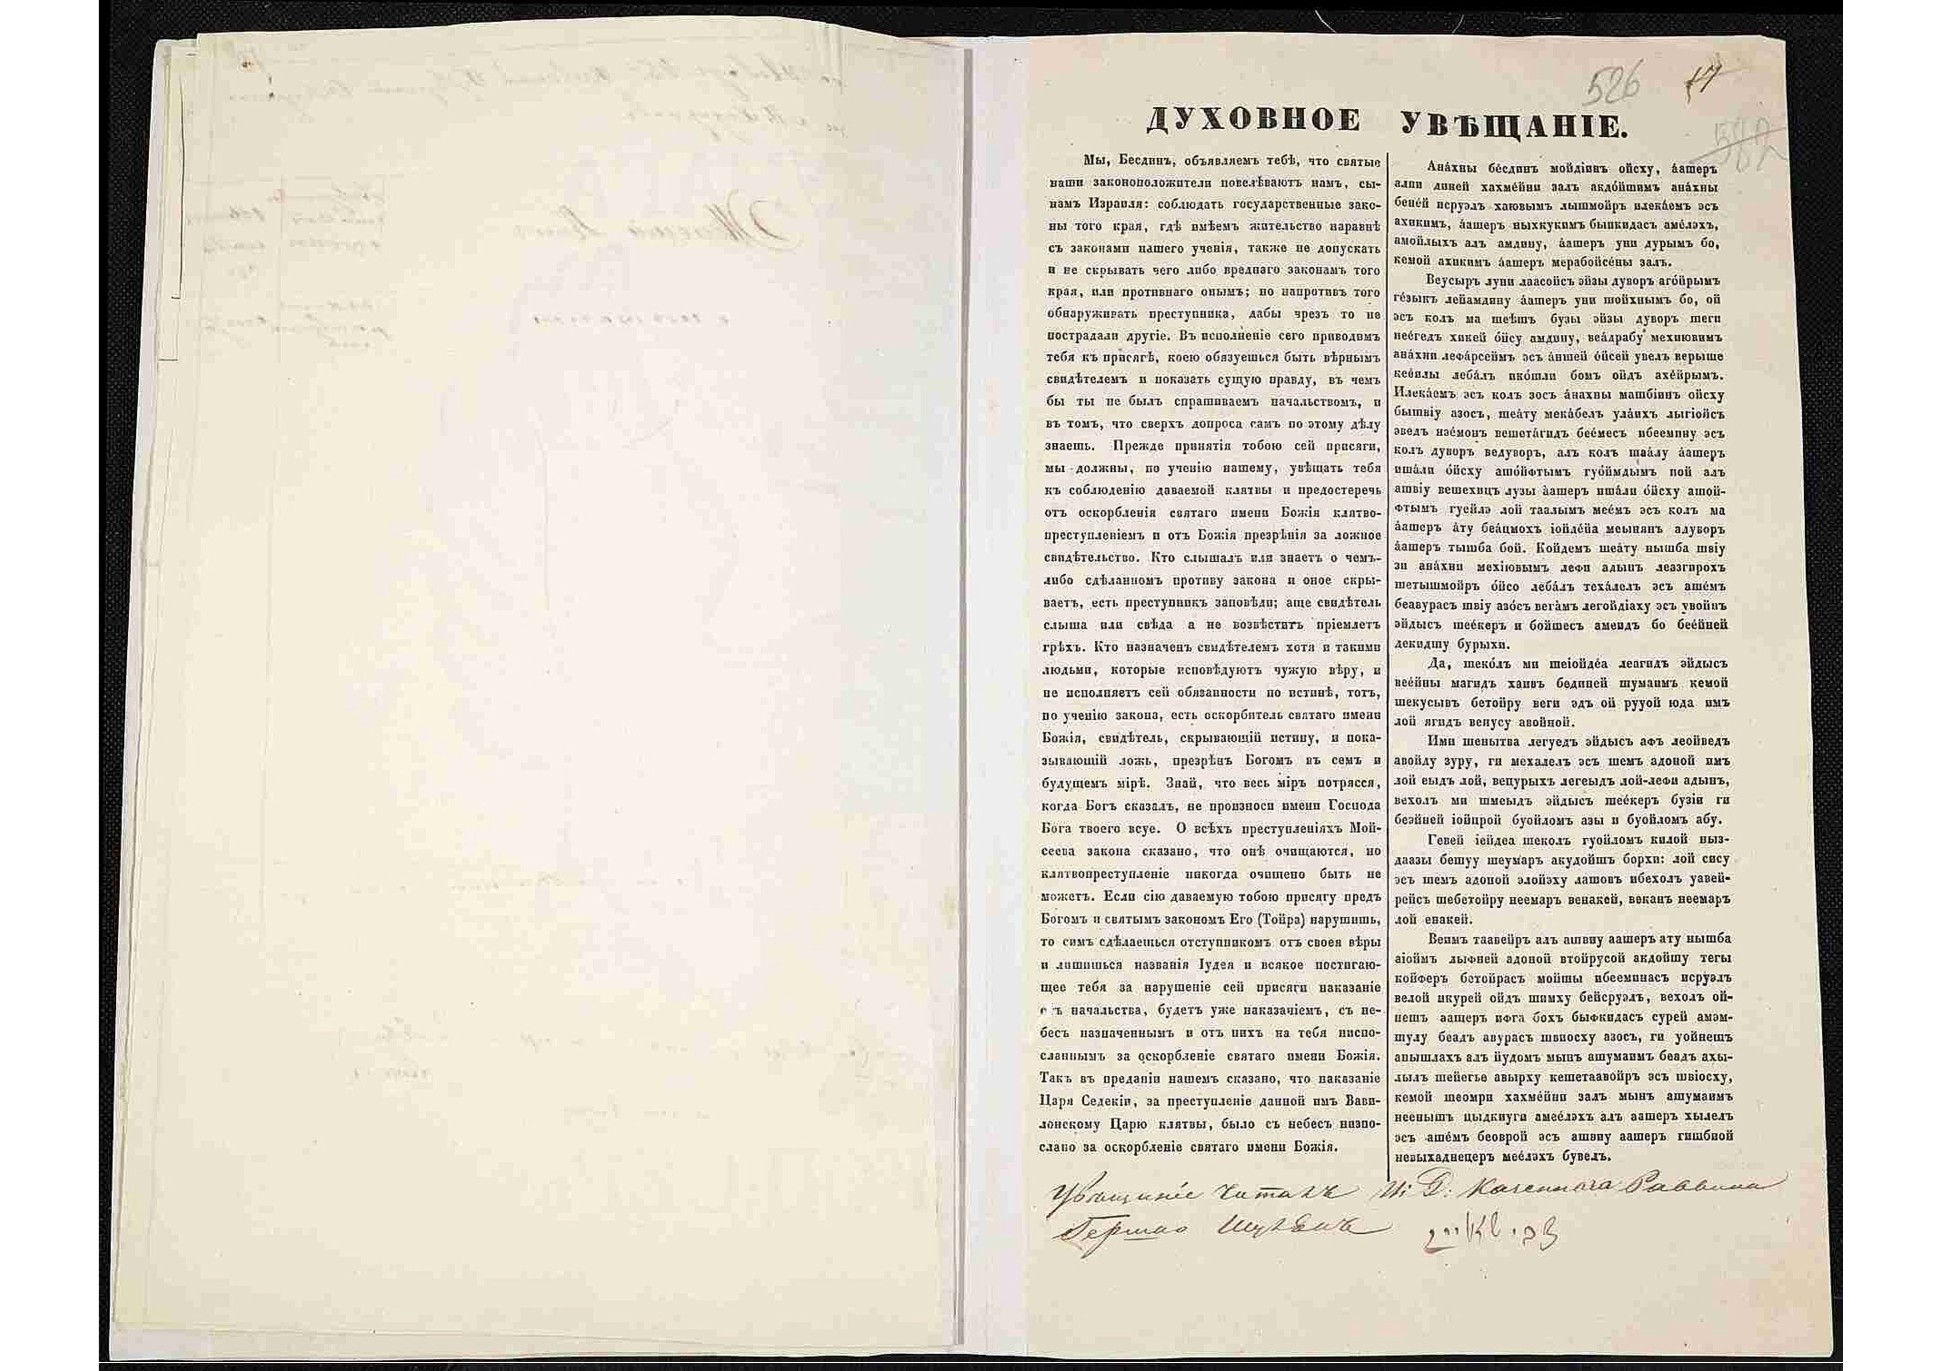 526 17
582
ДУХОВНОЕ УВѢЩАНІЕ.
Мы, Бесдинъ, объявляемъ тебѣ, что святые
наши законоположители повелѣваютъ намъ, сы-
намъ Израиля: соблюдать государственные зако-
ны того края, гдѣ имѣемъ жительство наравнѣ
съ законами нашего ученія, также не допускать
и не скрывать чего либо вреднаго законамъ того
края, или противнаго онымъ; но напротивъ того
обнаруживать преступника, дабы чрезъ то не
пострадали другіе. Въ исполненіе сего приводимъ
тебя къ присягѣ, коею обязуешься быть вѣрнымъ
свидѣтелемъ и показать сущую правду, въ чемъ
бы ты не былъ спрашиваемъ начальствомъ, и
въ томъ, что сверхъ допроса самъ по этому дѣлу
знаешь. Прежде принятія тобою сей присяги,
мы должны, по ученію нашему, увѣщать тебя
къ соблюденію даваемой клятвы и предостеречь
отъ оскорбленія святаго имени Божія клятво-
преступленіемъ и отъ Божія презрѣнія за ложное
свидѣтельство. Кто слышалъ или знаетъ о чемъ-
либо сдѣланномъ противу закона и оное скры-
ваетъ, есть преступникъ заповѣди; аще свидѣтель
слыша или свѣда а не возвѣститъ пріемлетъ
грѣхъ. Кто назначенъ свидѣтелемъ хотя и такими
людьми, которые исповѣдуютъ чужую вѣру, и
не исполняетъ сей обязанности по истинѣ, тотъ,
по ученію закона, есть оскорбитель святаго имени
Божія, свидѣтель, скрывающій истину, и пока-
зывающій ложь, презрѣнъ Богомъ въ семъ и
будущемъ мірѣ. Знай, что весь міръ потрясся,
когда Богъ сказалъ, не произноси имени Господа
Бога твоего всуе. О всѣхъ преступленіяхъ Мой-
сеева закона сказано, что онѣ очищаются, но
клятвопреступленіе никогда очищено быть не
можетъ. Если сію даваемую тобою присягу предъ
Богомъ и святымъ закономъ Его (Тойра) нарушишь,
то симъ сдѣлаешься отступникомъ отъ своея вѣры
и лишишься названія Іудея и всякое постигаю-
щее тебя за нарушеніе сей присяги наказаніе
съ начальства, будетъ уже наказаніемъ, съ не-
бесъ назначеннымъ и отъ нихъ на тебя ниспо-
сланнымъ за оскорбленіе святаго имени Божія.
Такъ въ преданіи нашемъ сказано, что наказаніе
Царя Седекіи, за преступленіе данной имъ Вави-
лонскому Царю клятвы, было съ небесъ низпо-
слано за оскорбленіе святаго имени Божія.
Ана́хны бе́сдинъ мойдіинъ ойсху, а́ашеръ
алпи диней хахме́йни залъ акдо́йшимъ ана́хны
бене́й исруэлъ хаювымъ лышмойръ илека́емъ эсъ
ахикимъ, а́ашеръ ныхкукимъ быпкидасъ аме́лэхъ,
амойлыхъ алъ амдину, а́ашеръ уни дурымъ бо,
кемой ахикимъ а́ашеръ мерабойсе́ны залъ.
Веусыръ луни лаасойсъ эйзы дуворъ аго́йрымъ
ге́зыкъ лейамдину а́ашеръ уни шойхнымъ бо, ой
эсъ колъ ма ше́ѣшъ бузы эйзы дуворъ шеги
нее́гедъ хикей о́йсу амдину, веа́драбу мехиювимъ
ана́хни лефа́рсеймъ эсъ а́ншей о́йсей увелъ верыше
кее́илы леба́лъ ико́шли бомъ ойдъ ахе́йрымъ.
Илека́емъ эсъ колъ зосъ а́нахны машбіинъ ойсху
бышвіу азосъ, шеа́ту мека́белъ ула́ихъ лыгіойсъ
эведъ нэе́монъ вешета́гидъ бее́месъ ибеемину эсъ
колъ дуворъ ведуворъ, алъ колъ шаа́лу а́ашеръ
иша́ли о́йсху ашо́йфтымъ гуо́ймдымъ пой алъ
ашвіу вешехицъ лузы а́ашеръ иша́ли о́йсху ашой-
фтымъ гуейлэ лой таалымъ мее́мъ эсъ колъ ма
а́ашеръ а́ту беа́цмохъ іойде́йа меынянъ адуворъ
а́ашеръ тышба бой. Койдемъ шеа́ту нышба швіу
зи ана́хни мехіювымъ лефи адынъ леазгирохъ
шетышмойръ о́йсо леба́лъ теха́лелъ эсъ аше́мъ
беавурасъ швіу азо́съ вега́мъ легойдіаху эсъ увойнъ
эйдысъ шее́керъ и бойшесъ амеидъ бо бее́йней
декидшу бурыхи.
Да, шеко́лъ ми шеіойде́а леагидъ эйдысъ
вее́йны магидъ хаивъ бединей шумаимъ кемой
шекусывъ бетойру веги эдъ ой рууой юда имъ
лой ягидъ венусу авойной.
Ими шенытва легуедъ эйдысъ афъ леойведъ
авойду зуру, ги мехалелъ эсъ шемъ адоной имъ
лой еыдъ лой, вецурыхъ легеыдъ лой-лефи адынъ,
вехолъ ми шмеыдъ эйдысъ шее́керъ бузіи ги
беэйней іойцрой буойломъ азы и буойломъ абу.
Гевей іейдеа шеколъ гуойломъ килой ныз-
даазы бешуу шеума́ръ акудойшъ борхи: лой сису
эсъ шемъ адоной элойэху лашовъ ибехолъ уавей-
рейсъ шебетойру неемаръ венакей, веканъ неемаръ
лой енакей.
Веимъ таавейръ алъ ашвиу аашеръ ату нышба
аіоймъ лыфней адоной втойрусой акдойшу тегы
койферъ бетойрасъ мойшы ибееминасъ исруэлъ
велой икурей ойдъ шимху бейсруэлъ, вехолъ ой-
нешъ аашеръ ифга бохъ быфкидасъ сурей амэм-
шулу беадъ авурасъ швиосху азосъ, ги уойнешъ
анышлахъ алъ йудомъ мынъ ашумаимъ беадъ ахы-
лылъ шейегье авырху кешетаавойръ эсъ швіосху,
кемой шеомри хахме́йни залъ мынъ ашумаимъ
неенышъ цыдкиуги амее́лэхъ алъ аашеръ хылелъ
эсъ аше́мъ беоврой эсъ ашвиу аашеръ гишбиой
невыхаднецеръ мее́лэхъ бувелъ.
Увѣщаніе читалъ И: Д: Казеннаго Раввина
Гершко